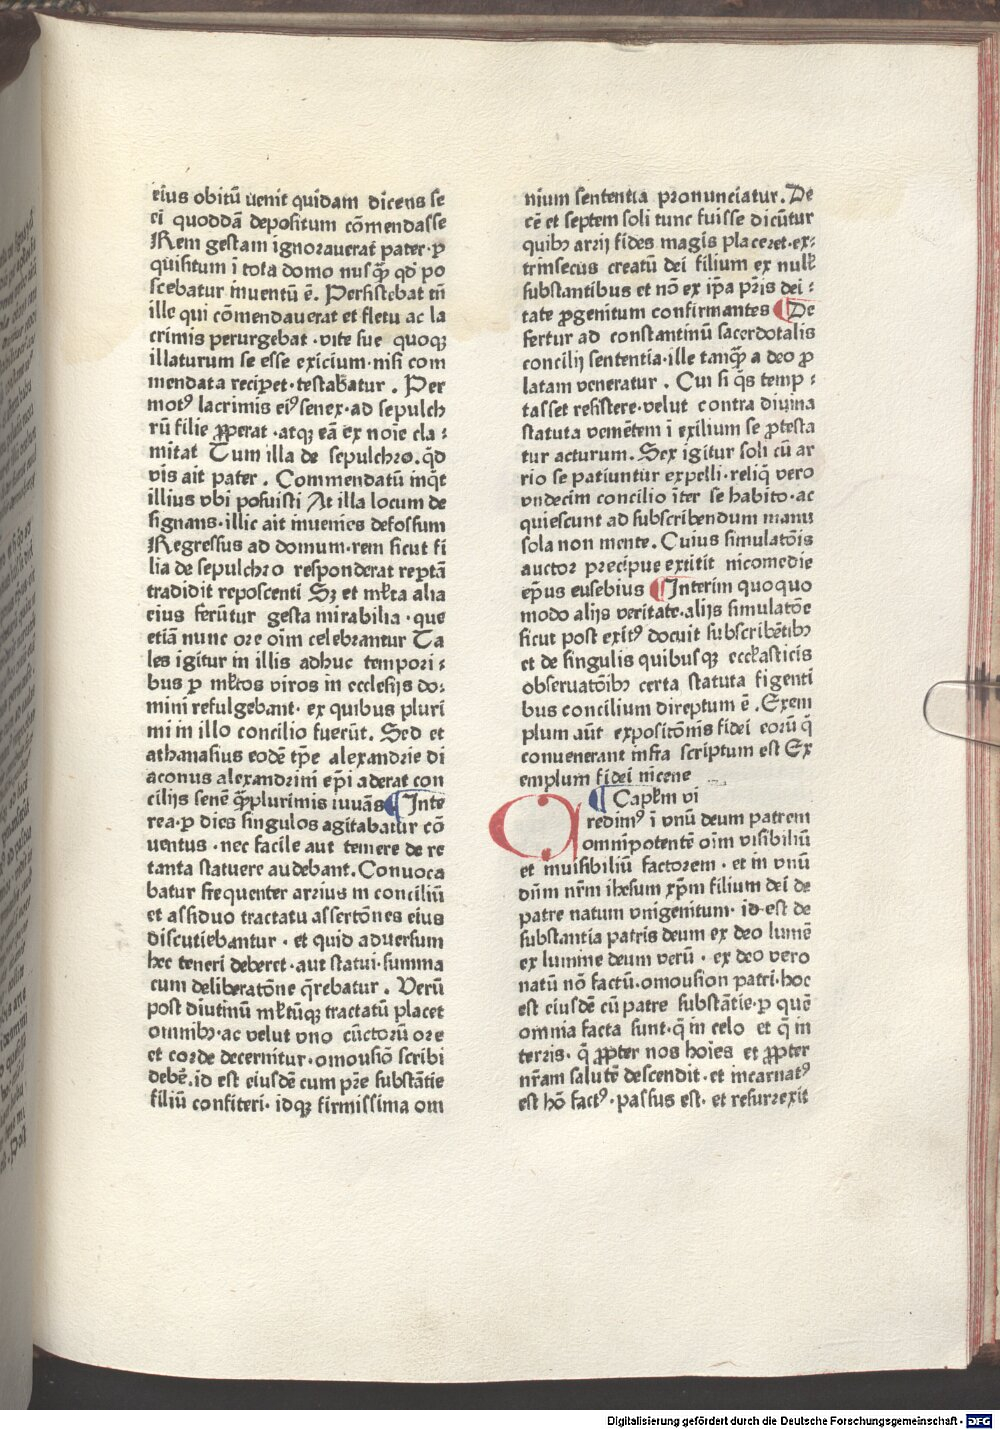 eius obitū uenit quidam dicens se
ei quoddā depositum cōmendasse
Rem gestam ignorauerat pater·p
quisitum ī tota domo nusꝙ̄ qd̕ po
scebatur inuentū ē. Persistebat tn̄
ille qui cōmendauerat et fletu ac la
crimis perurgebat·vite sue quoqꝫ
illaturum se esse exicium·nisi com
mendata reciꝑet·testabatur. Per
motꝰ lacrimis eiꝰ senex·ad sepulch
rū filie ꝓperat·atqꝫ eā ex noīe cla:
mitat Tum illa de sepulchro.qd̄
vīs ait pater. Commendatū inqͭ
illius vbi posuisti At illa locum de
signans·illic ait inuenies defossum
Regressus ad domum·rem sicut fi
lia de sepulchro responderat reꝑtā
tradidit reposcenti Sꝫ et ml̕ta alia
eius ferūtur gesta mirabilia·que
etiā nunc ore oīm celebrantur Ta
les igitur in illis adhuc tempori:
bus ꝑ ml̕tos viros in ecclesijs do:
mini refulgebant· ex quibus pluri
mi in illo concilio fuerūt. Sed et
athanasius eodē tꝑe alexandrie di
aconus alexandrini eꝑi aderat con
cilijs senē ꝙ̄plurimis iuuās ¶ Inte
rea·ꝑ dies singulos agitabatur cō
uentus·nec facile aut temere de re
tanta statuere audebant.Conuoca
batur frequenter arrius in conciliū
et assiduo tractatu assertōnes eius
discutiebantur·et quid aduersum
hec teneri deberet·aut statui·summa
cum deliberatōne q̄rebatur. Verū
post diutinū ml̕tūqꝫ tractatū placet
omnibꝫ·ac velut vno cūctorū ore
et corde decernitur·omousiō scribi
debē.id est eiusdē cum pr̄e substātie
filiū confiteri·idqꝫ firmissima om
nium sententia pronunciatur.De
cē et septem soli tunc fuisse dicūtur
quibꝫ arrij fides magis placeret·ex:
trinsecus creatū dei filium ex null̕
substantibus et nō ex ip̄a pr̄is dei:
tate ꝓgenitum confirmantes ¶ De
fertur ad constantinū sacerdotalis
concilij sententia·ille tanꝙ̄ a deo ꝓ
latam veneratur. Cui si q̄s temp:
tasset resistere·velut contra diuina
statuta veniētem ī exilium se ꝓtesta
tur acturum. Sex igitur soli cū ar
rio se patiuntur expelli·reliq̄ vero
vndecim concilio īter se habito·ac
quiescunt ad subscribendum manu
sola non mente.Cuius simulatōis
auctor precipue extitit nicomedie
eꝑus eusebius ¶ Interim quoquo
modo alijs veritate·alijs simulatōe
sicut post exitꝰ docuit subscribētibꝫ
et de singulis quibusqꝫ eccl̕asticis
obseruatōibꝫ certa statuta figenti
bus concilium direptum ē.Exem
plum aūt expositōnis fidei eorū q̄
conuenerant infra scriptum est Ex
emplum fidei nicene
¶ Capl̕m vi
Credimꝰ ī vnū deum patrem
omnipotentē oīm visibiliū
et inuisibiliū factorem·et in vnū
dn̄m nr̄m ihesum xp̄m filium dei de
patre natum vnigenitum·id est de
substantia patris deum ex deo lumē
ex lumine deum verū·ex deo vero
natū nō factū.omousion patri·hoc
est eiusdē cū patre substātie·ꝑ quē
omnia facta sunt·q̄ in celo et q̄ in
terris· q̄ ꝓpter nos hoīes et ꝓpter
nr̄am salutē descendit·et incarnatꝰ
est hō factꝰ·passus est·et resurrexit
Digitalisierung gefördert durch die Deutsche Forschungsgemeinschaft - DFG